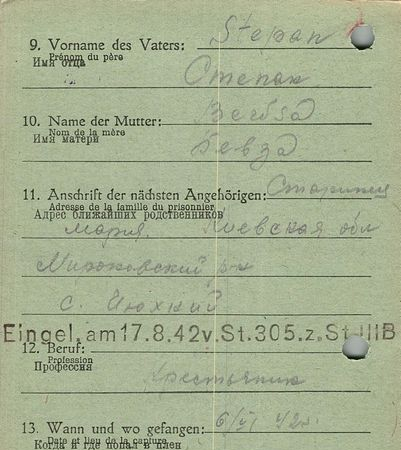 9. Vorname des Vaters: Stepan
Prénom du père
Имя отца
Степан
10. Name der Mutter:
Nom de la mère
Имя матери
11. Anschrift der nächsten Angehörigen:
Adresse de la famille du prisonnier
Адрес ближайших родственников
Мария. Киевская обл
р-н
с.
Eingel. am 17.8.42 v. St. 305. z. St-IIIB
12. Beruf:
Profession
Профессия
Крестьянин
13. Wann und wo gefangen: 6/VI 42г.
Date et lieu de la capture
Когда и где попал в плен